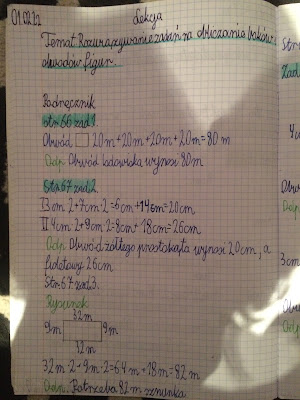 01.02.22 Lekcja
Temat Rozwiązywanie zadań na obliczanie boków i
obwodów figur.
Podręcznik
str 66 zad 1
Obwód □ 20m+20m+20m+20m=80m
Odp. Obwód lodowiska wynosi 80m
Str 67 zad.2
I 3cm·2+7cm·2=6cm+14cm=20cm
II 4cm·2+9cm·2=8cm+18cm=26cm
Odp. Obwód żółtego prostokąta wynosi 20cm, a
fioletowy 26cm
Str 67 zad 3.
Rysunek
32m
9m 9m
32m
32m·2+9m·2=64m+18m=82m
Odp. Potrzeba 82m sznurka
Str
Zad
4c
3c